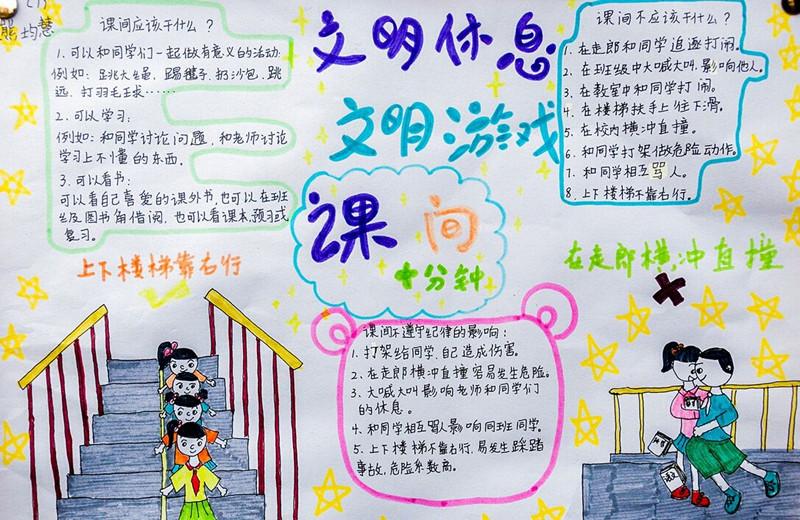 熊均慧
课间应该干什么？
1. 可以和同学们一起做有意义的活动
例如：跳大绳、踢毽子、扔沙包、跳
远、打羽毛球……
2. 可以学习：
例如：和同学讨论问题，和老师讨论
学习上不懂的东西。
3. 可以看书：
可以看自己喜爱的课外书，也可以在班
级图书角借阅，也可以看课本，预习或
复习。
文明休息
文明游戏
课间
十分钟
课间不应该干什么？
1. 在走郎和同学追逐打闹。
2. 在班级中大喊大叫，影响他人。
3. 在教室中和同学打闹。
4. 在楼梯扶手上往下滑。
5. 在校内横冲直撞。
6. 和同学打架做危险动作。
7. 和同学相互骂人。
8. 上下楼梯不靠右行。
上下楼梯靠右行
在走郎横冲直撞
课间不遵守纪律的影响：
1. 打架给同学、自己造成伤害。
2. 在走郎横冲直撞容易发生危险。
3. 大喊大叫影响老师和同学们
的休息。
4. 和同学相互骂人影响同班同学。
5. 上下楼梯不靠右行，易发生踩踏
事故，危险系数高。